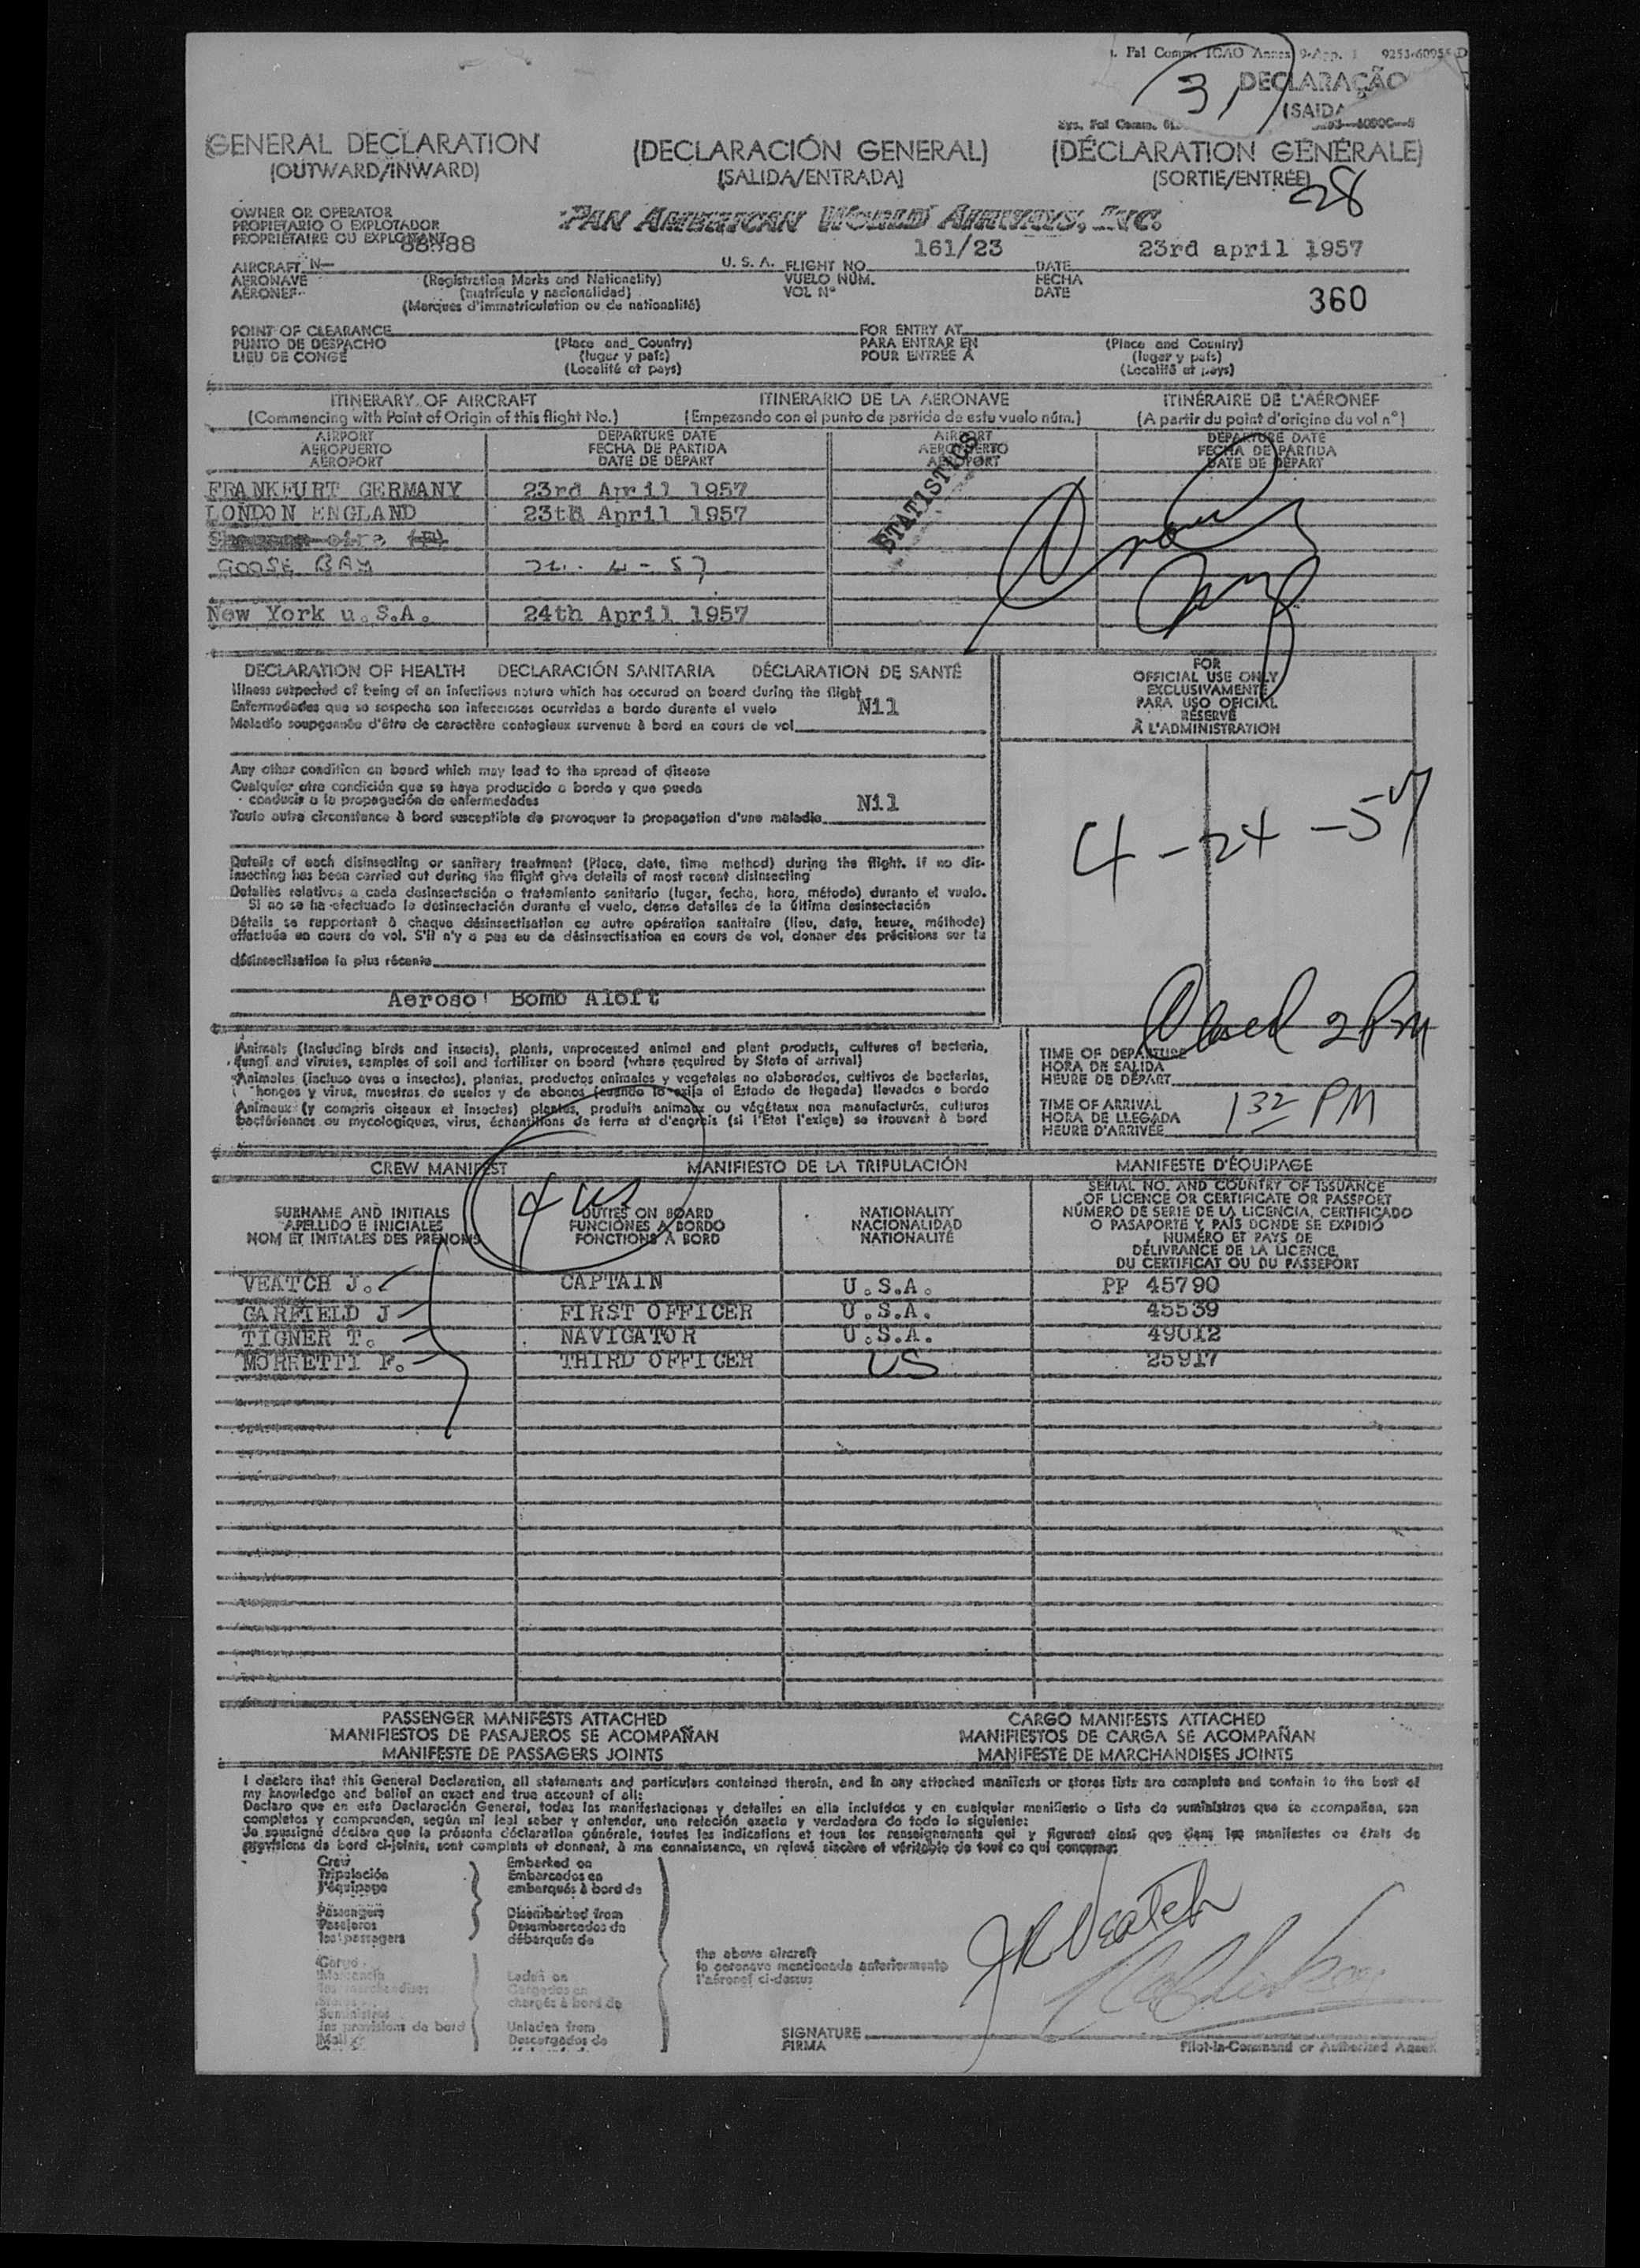 . Fal Comm. ICAO Annex 9-App. 1 9253-6095
31
DECLARAÇÃO
(SAIDA
Sys. Fal Comm.
GENERAL DECLARATION (DECLARACIÓN GENERAL) (DÉCLARATION GÉNÉRALE)
(OUTWARD/INWARD) (SALIDA/ENTRADA) (SORTIE/ENTRÉE)
28
OWNER OR OPERATOR
PROPIETARIO O EXPLOTADOR
PROPRIÉTAIRE OU EXPLOITANT
PAN AMERICAN WORLD AIRWAYS, INC.
88388 161/23 23rd april 1957
AIRCRAFT N— U. S. A. FLIGHT NO. DATE
AERONAVE (Registration Marks and Nationality) VUELO NÚM. FECHA
AÉRONEF (matrícula y nacionalidad) VOL Nº DATE
(Marques d'immatriculation ou de nationalité)
360
POINT OF CLEARANCE FOR ENTRY AT
PUNTO DE DESPACHO (Place and Country) PARA ENTRAR EN (Place and Country)
LIEU DE CONGÉ (lugar y país) POUR ENTRÉE À (lugar y país)
(Localité et pays) (Localité et pays)
ITINERARY OF AIRCRAFT ITINERARIO DE LA AERONAVE ITINÉRAIRE DE L'AÉRONEF
(Commencing with Point of Origin of this flight No.) (Empezando con el punto de partida de este vuelo núm.) (A partir du point d'origine du vol nº)
AIRPORT DEPARTURE DATE AIRPORT DEPARTURE DATE
AEROPUERTO FECHA DE PARTIDA AEROPUERTO FECHA DE PARTIDA
AÉROPORT DATE DE DÉPART AÉROPORT DATE DE DÉPART
STATISTICS
FRANKFURT GERMANY 23rd April 1957
LONDON ENGLAND 23th April 1957
GOOSE BAY 24 - 4 - 57
New York u.S.A. 24th April 1957
DECLARATION OF HEALTH DECLARACIÓN SANITARIA DÉCLARATION DE SANTÉ
Illness suspected of being of an infectious nature which has occured on board during the flight
Enfermedades que se sospecha son infecciosas ocurridas a bordo durante el vuelo Nil
Maladie soupçonnée d'être de caractère contagieux survenue à bord en cours de vol
FOR
OFFICIAL USE ONLY
EXCLUSIVAMENTE
PARA USO OFICIAL
RÉSERVÉ
À L'ADMINISTRATION
Any other condition on board which may lead to the spread of disease
Cualquier otra condición que se haya producido a bordo y que pueda
conducir a la propagación de enfermedades Nil
Toute autre circonstance à bord susceptible de provoquer la propagation d'une maladie
4-24-57
Details of each disinsecting or sanitary treatment (Place, date, time method) during the flight. If no dis-
insecting has been carried out during the flight give details of most recent disinsecting
Detalles relativos a cada desinsectación o tratamiento sanitario (lugar, fecha, hora, método) durante el vuelo.
Si no se ha efectuado la desinsectación durante el vuelo, dense detalles de la última desinsectación
Détails se rapportant à chaque désinsectisation ou autre opération sanitaire (lieu, date, heure, méthode)
effectuée en cours de vol. S'il n'y a pas eu de désinsectisation en cours de vol, donner des précisions sur la
désinsectisation la plus récente
Aerosol Bomb Aloft
Closed 2PM
Animals (including birds and insects), plants, unprocessed animal and plant products, cultures of bacteria,
fungi and viruses, samples of soil and fertilizer on board (where required by State of arrival)
Animales (incluso aves o insectos), plantas, productos animales y vegetales no elaborados, cultivos de bacterias,
hongos y virus, muestras de suelos y de abonos (cuando lo exija el Estado de llegada) llevados a bordo
Animaux (y compris oiseaux et insectes) plantes, produits animaux ou végétaux non manufacturés, cultures
bactériennes ou mycologiques, virus, échantillons de terre et d'engrais (si l'État l'exige) se trouvant à bord
TIME OF DEPARTURE
HORA DE SALIDA
HEURE DE DÉPART
TIME OF ARRIVAL
HORA DE LLEGADA 1 32 PM
HEURE D'ARRIVÉE
CREW MANIFEST MANIFIESTO DE LA TRIPULACIÓN MANIFESTE D'ÉQUIPAGE
4 US
SURNAME AND INITIALS
APELLIDO E INICIALES
NOM ET INITIALES DES PRÉNOMS
DUTIES ON BOARD
FUNCIONES A BORDO
FONCTIONS À BORD
NATIONALITY
NACIONALIDAD
NATIONALITÉ
SERIAL NO. AND COUNTRY OF ISSUANCE
OF LICENCE OR CERTIFICATE OR PASSPORT
NÚMERO DE SERIE DE LA LICENCIA, CERTIFICADO
O PASAPORTE Y PAÍS DONDE SE EXPIDIÓ
NUMÉRO ET PAYS DE
DÉLIVRANCE DE LA LICENCE,
DU CERTIFICAT OU DU PASSEPORT
VEATCH J. CAPTAIN U.S.A. PP 45790
GARFIELD J FIRST OFFICER U.S.A. 45539
TIGNER T. NAVIGATOR U.S.A. 49012
MORRETTI F. THIRD OFFICER US 25917
PASSENGER MANIFESTS ATTACHED CARGO MANIFESTS ATTACHED
MANIFIESTOS DE PASAJEROS SE ACOMPAÑAN MANIFIESTOS DE CARGA SE ACOMPAÑAN
MANIFESTE DE PASSAGERS JOINTS MANIFESTE DE MARCHANDISES JOINTS
I declare that this General Declaration, all statements and particulars contained therein, and in any attached manifests or stores lists are complete and contain to the best of
my knowledge and belief an exact and true account of all:
Declaro que en esta Declaración General, todas las manifestaciones y detalles en ella incluídos y en cualquier manifiesto o lista de suministros que se acompañan, son
completos y comprenden, según mi leal saber y entender, una relación exacta y verdadera de todo lo siguiente:
Je soussigné déclare que la présente déclaration générale, toutes les indications et tous les renseignements qui y figurent ainsi que dans les manifestes ou états de
provisions de bord ci-joints, sont complets et donnent, à ma connaissance, un relevé sincère et véritable de tout ce qui concerne:
Crew Embarked on
Tripulación Embarcados en
l'équipage embarqués à bord de
Passengers Disembarked from
Pasajeros Desembarcados de
les passagers débarqués de
the above aircraft
la aeronave mencionada anteriormente
l'aéronef ci-dessus
Cargo
Mercancía Laden on
les marchandises Cargados en
Stores chargés à bord de
Suministros
les provisions de bord Unladen from
Mail Descargados de
JR Veatch
SIGNATURE
FIRMA Pilot-in-Command or Authorized Agent